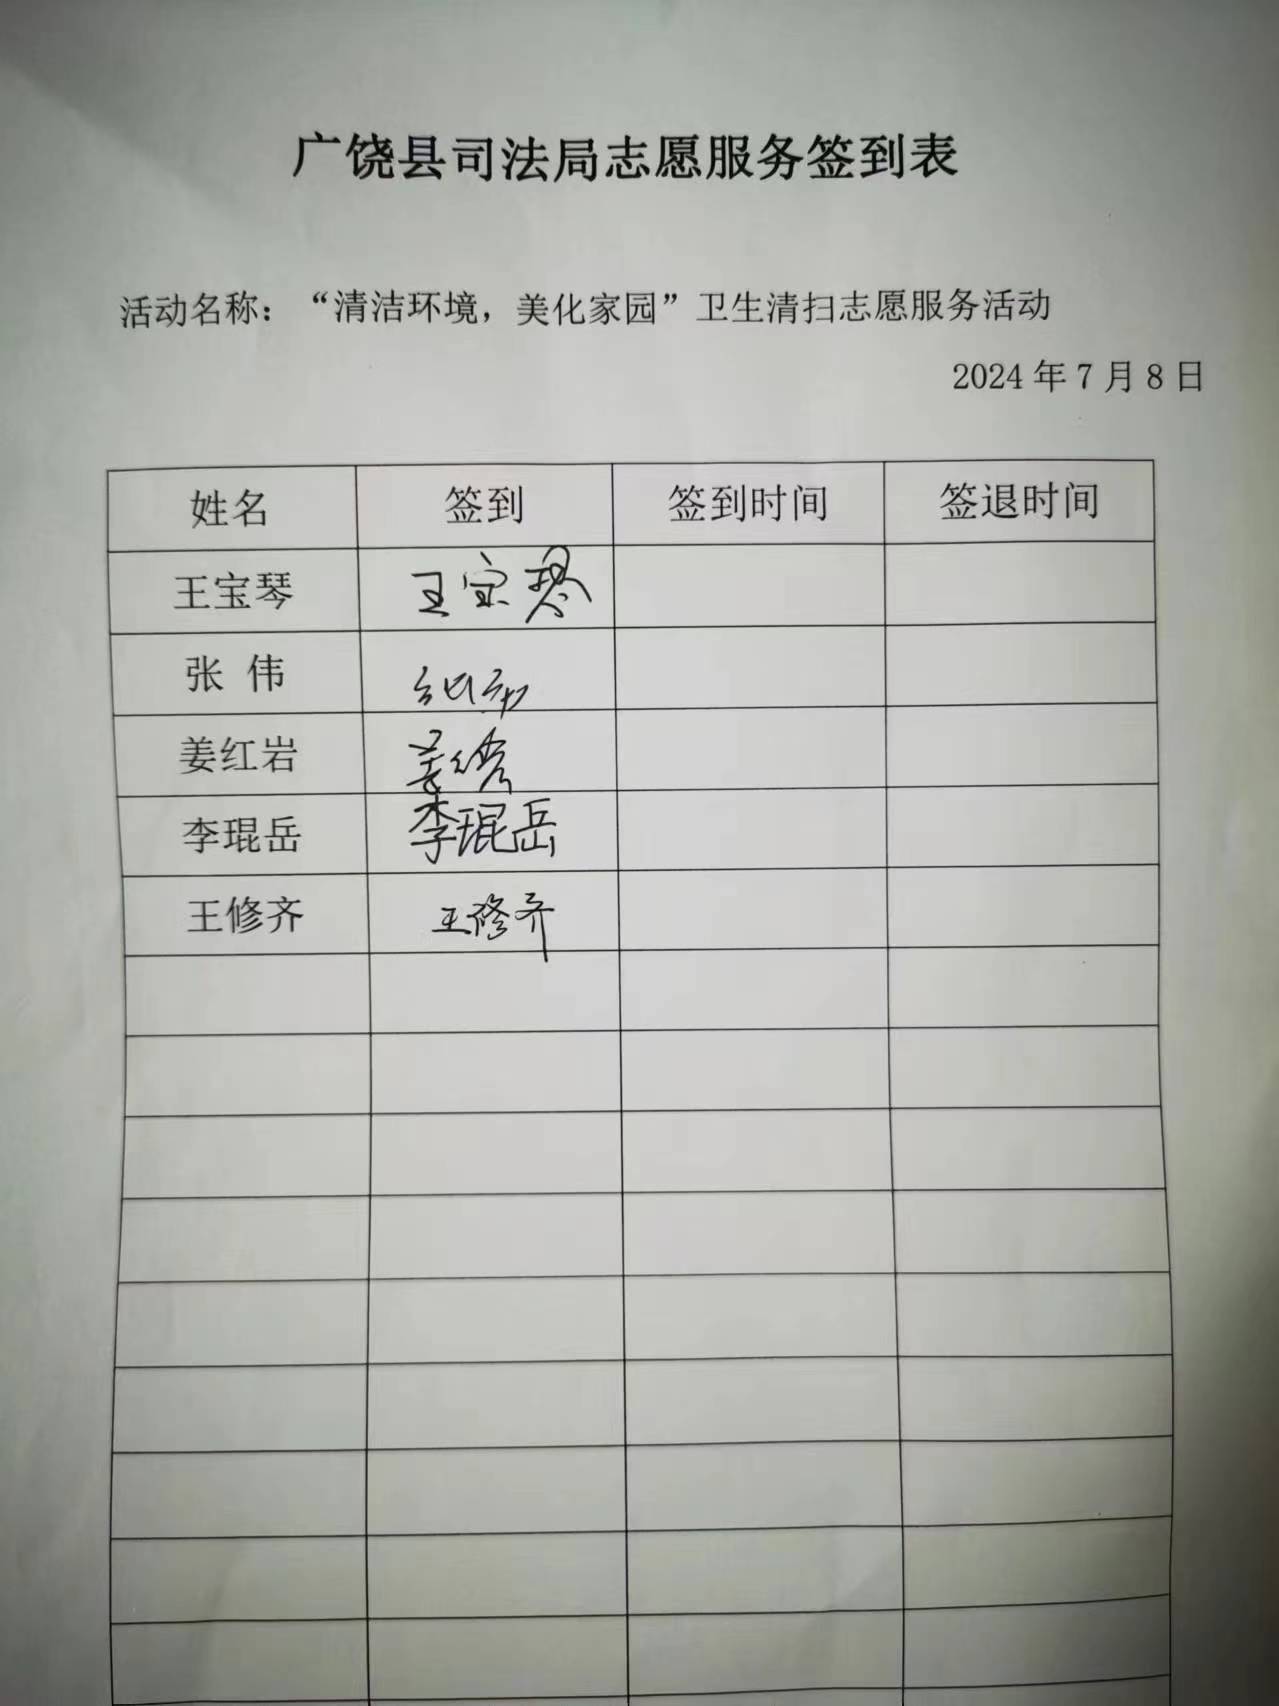 广饶县司法局志愿服务签到表
活动名称：“清洁环境，美化家园”卫生清扫志愿服务活动
2024年7月8日
姓名 签到 签到时间 签退时间
王宝琴 王宝琴
张 伟
姜红岩 姜红岩
李琨岳 李琨岳
王修齐 王修齐